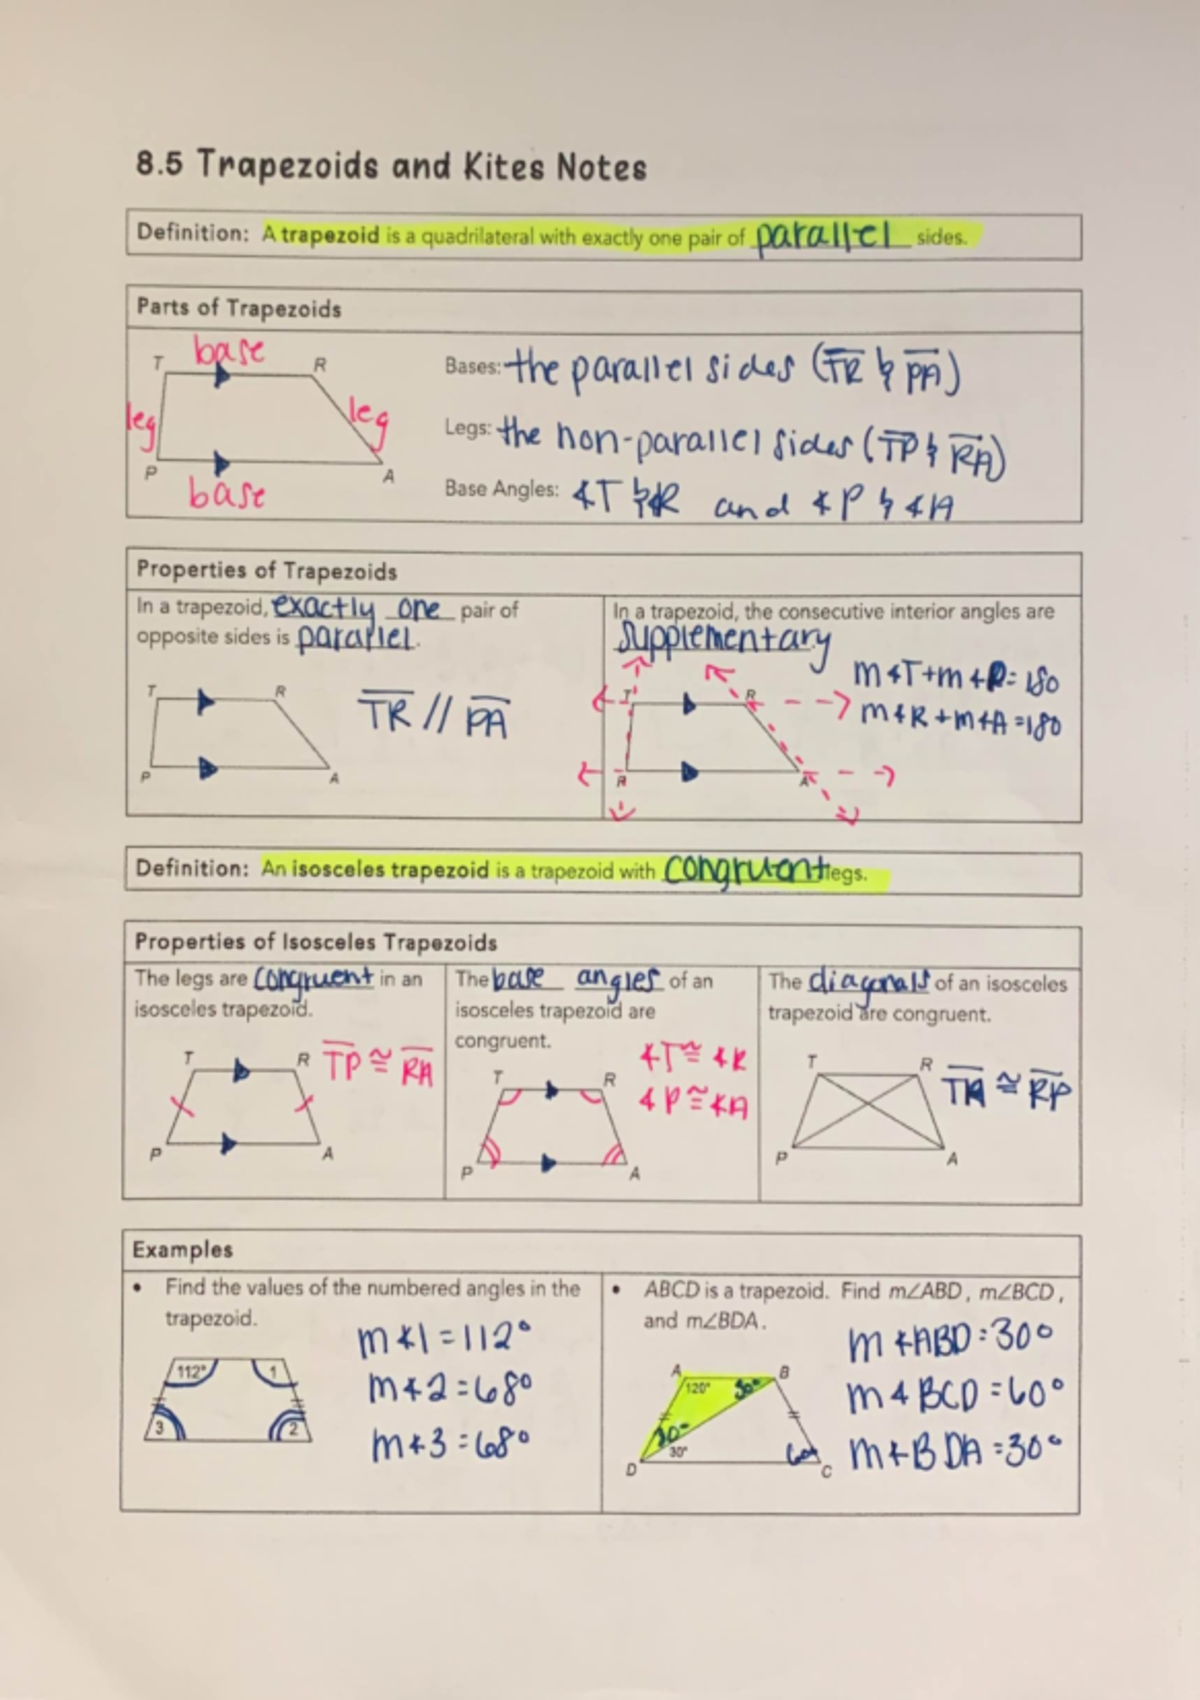 8.5 Trapezoids and Kites Notes
Definition: A trapezoid is a quadrilateral with exactly one pair of parallel sides.
Parts of Trapezoids
T base R
leg leg
P base A
Bases: the parallel sides (TR & PA)
Legs: the non-parallel sides (TP & RA)
Base Angles: ∠T & ∠R and ∠P & ∠A
Properties of Trapezoids
In a trapezoid, exactly one pair of
opposite sides is parallel.
T R
TR // PA
P A
In a trapezoid, the consecutive interior angles are
supplementary
m∠T+m∠P=180
m∠R+m∠A=180
T R
R A
Definition: An isosceles trapezoid is a trapezoid with congruent legs.
Properties of Isosceles Trapezoids
The legs are congruent in an
isosceles trapezoid.
T R TP ≅ RA
P A
The base angles of an
isosceles trapezoid are
congruent.
∠T ≅ ∠R
∠P ≅ ∠A
T R
P A
The diagonals of an isosceles
trapezoid are congruent.
T R TA ≅ RP
P A
Examples
• Find the values of the numbered angles in the
trapezoid.
112° 1
3 2
m∠1=112°
m∠2=68°
m∠3=68°
• ABCD is a trapezoid. Find m∠ABD, m∠BCD,
and m∠BDA.
A B
120° 30°
30°
30° 60°
D C
m∠ABD=30°
m∠BCD=60°
m∠BDA=30°